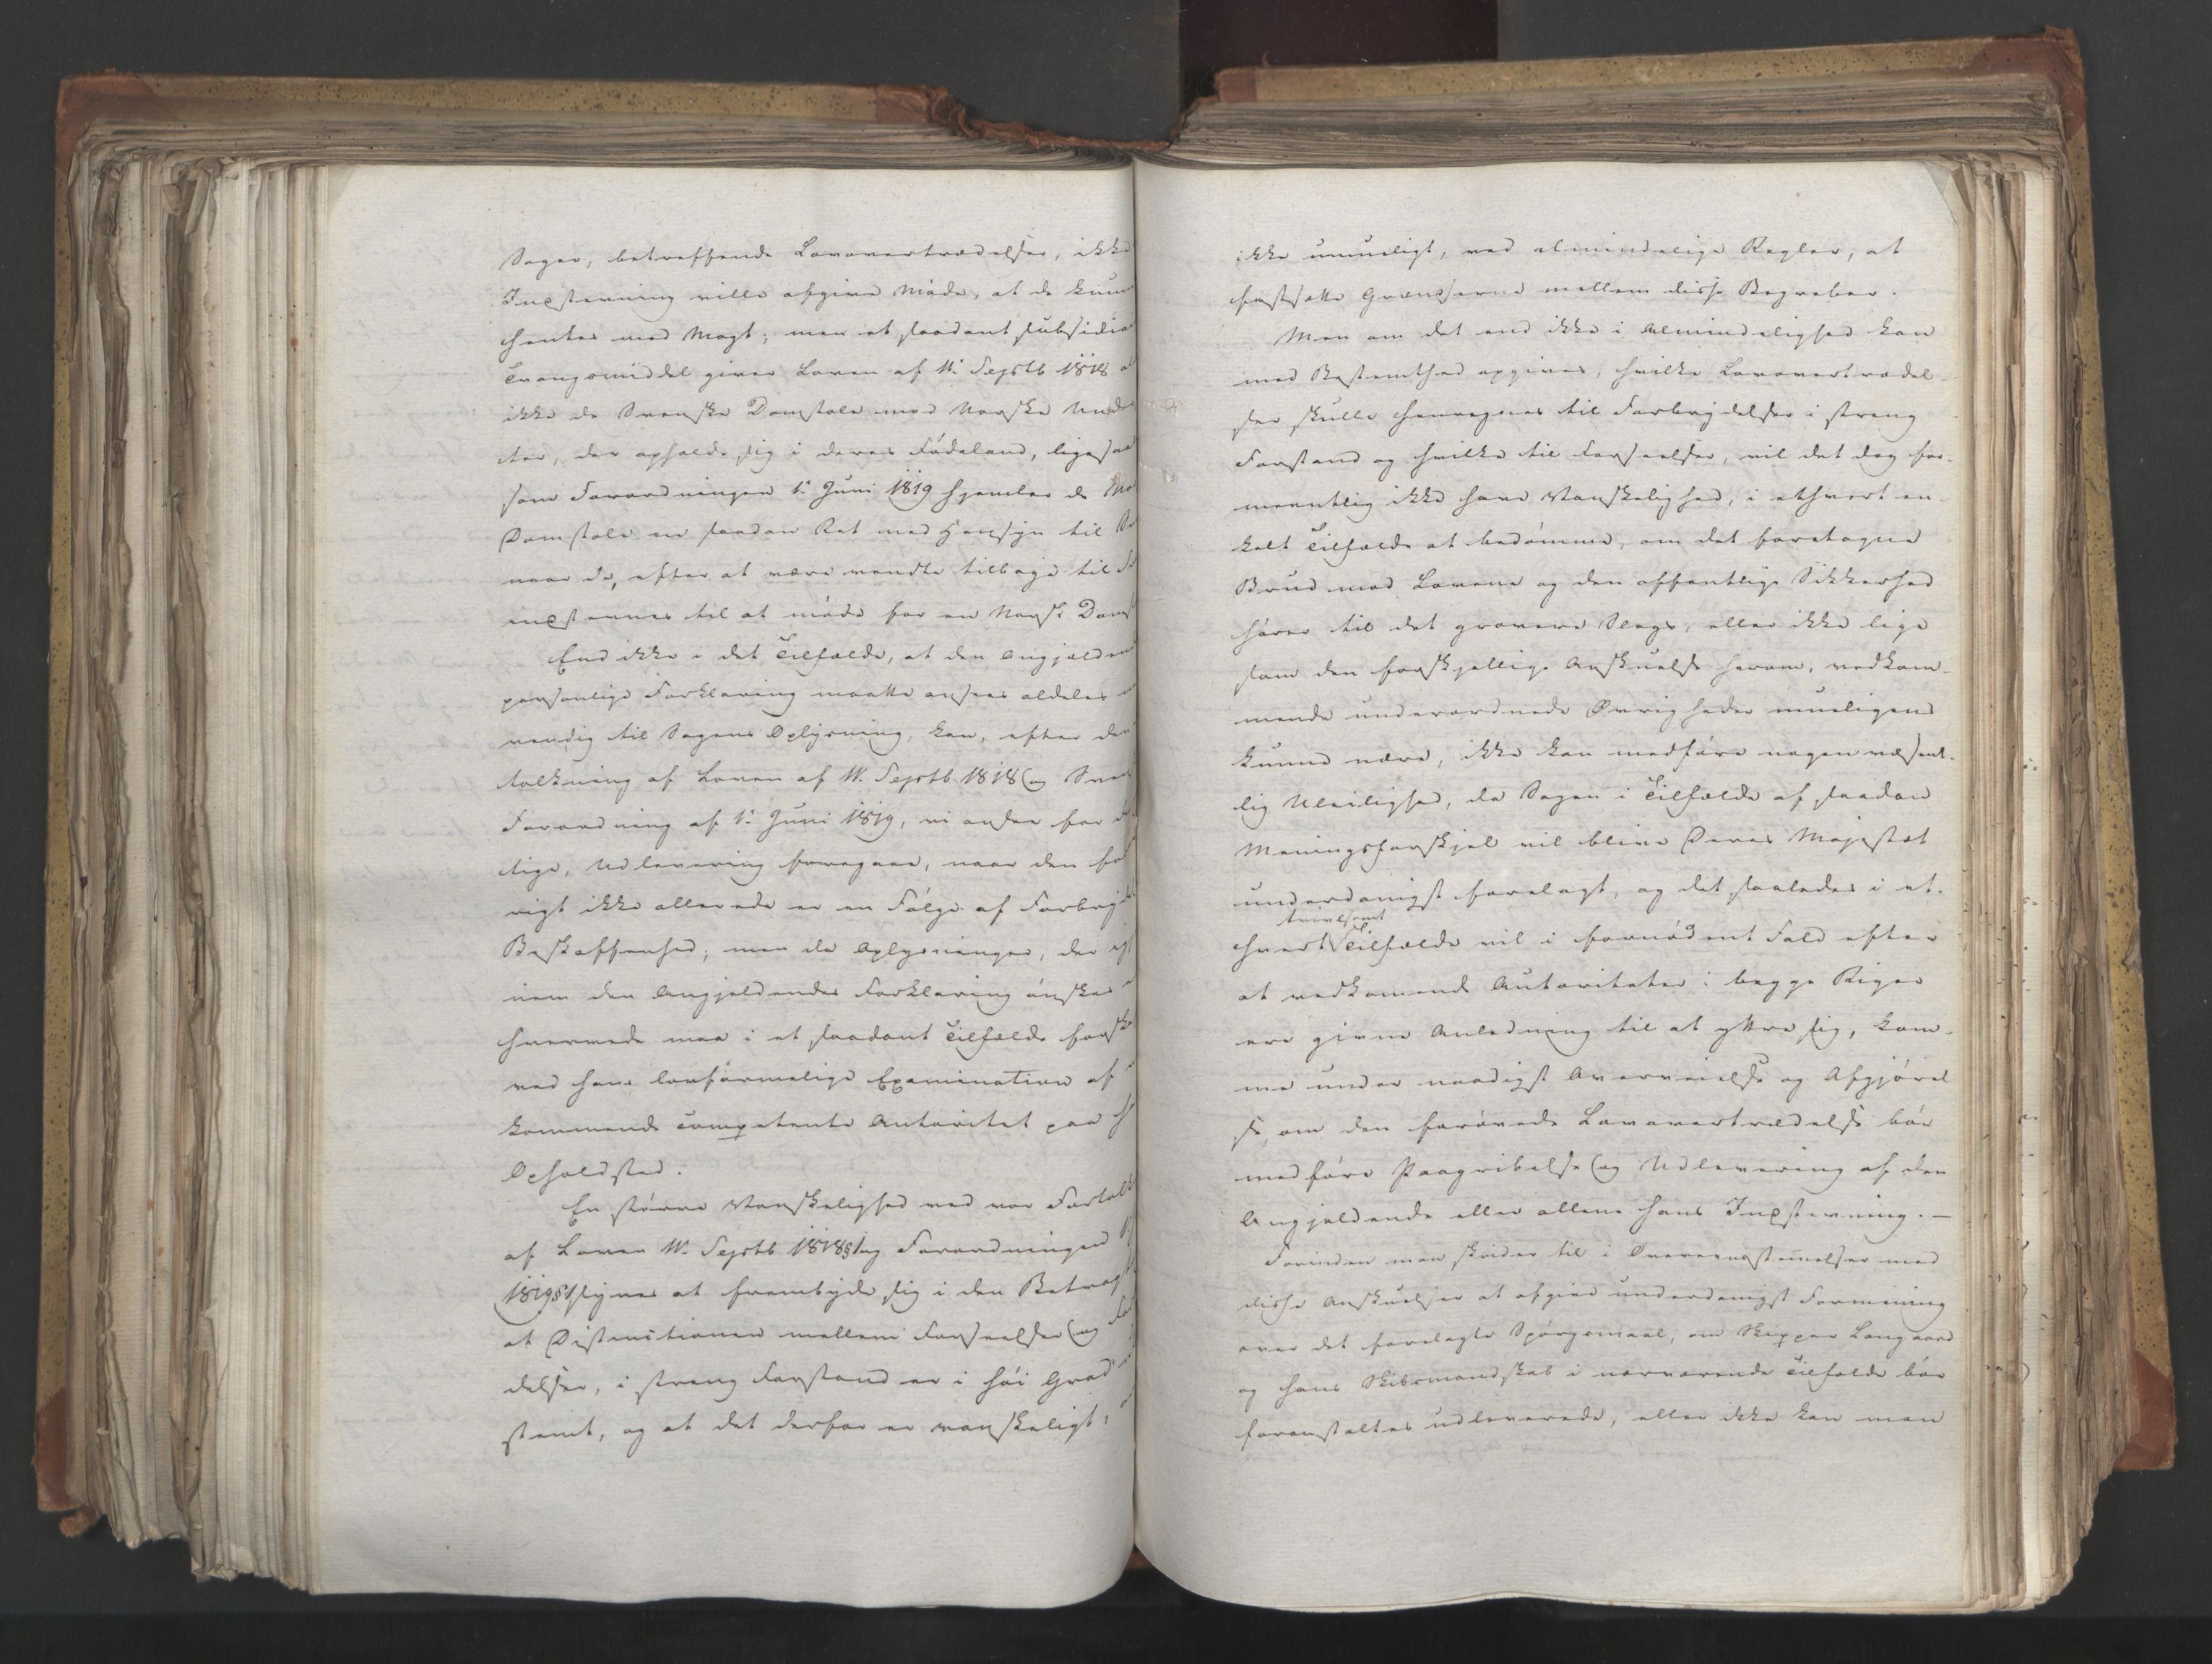 Sager, betreffende Lovovertrædelser, ikke
Indstevning ville afgive Møde, at de kunne
hentes med Magt; men et saadant subsidia
Tvangsmiddel giver Loven af 11. Septb 1818 al
ikke de Svenske Domstole mod Norske Under
ter, der opholde sig i deres Fødeland, ligesaa
som Forordningen 1. Juni 1819 hjemler de No
Domstole en saadan Ret med Hensyn til
naar de, efter at være vendte tilbage til
indstevnes til at møde for en Norsk Domst
End ikke i det Tilfælde, at den Angjældend
personlige Forklaring maatte ansees aldeles
vendig til Sagens Oplysning, kan, efter den
tolkning af Loven af 11. Septb 1818 og Sven
Forordning af 1. Juni 1819, vi ansee for
tige, Udlevering foregaae, naar den
rigt ikke allerede er en Følge af Forbryd
Beskaffenhed; men de Oplysninger, der
nem den Angjeldendes Forklaring ønskes
hvervede maa i et saadant Tilfælde forsk
ved hans lovformelige Examination af
kommende competente Autoritet paa
Opholdsted.
En større Vanskelighed ved vor Fortolk
af Loven 11. Septb 1818 § 1 og Forordningen
1819 § 1 synes at frembyde sig i den Betrag
at Distinctionen mellem Forseelser og
delser, i streng Forstand er i høi Grad
stemt, og at det derfor er vanskeligt,
ikke umueligt, ved almindelige Regler, at
fastsætte Grændserne mellem disse Begreber.
Men om det end ikke i Almindelighed kan
med Bestemthed opgives, hvilke Lovovertrædel-
ser skulle henregnes til Forbrydelser i streng
Forstand og hvilke til Forseelser, vil det dog for-
meentlig ikke have Vanskelighed, i ethvert en-
kelt Tilfælde at bedømme, om det foretagne
Brud mod Lovene og den offentlige Sikkerhed
hører til det grovere Slags, eller ikke lige
som den forskjellige Anskuelse herom, vedkom-
mende underordnede Øvrigheder mueligens
kunne nære, ikke kan medføre nogen væsent-
lig Uleilighed, da Sagen i Tilfælde af saadan
Meningsforskjel vil blive Deres Majestæt
underdanigst forelagt, og det saaledes i et-
tvivlsomt
hvert Tilfælde vil i fornødent Fald efter
at vedkomende Autoriteter i begge Riger
ere givne Anledning til at yttre sig, kom-
me under naadigst Overveielse og Afgjørel
se, om den forøvede Lovovertrædelse bør
medføre Paagribelse og Udlevering af den
Angjeldende eller allene hans Indstevning. —
Forinden man skrider til i Overeensstemelser med
disse Anskuelser at afgive underdanigst Formening
over det forelagte Spørgsmaal, om Skipper Langaard
og hans Skibsmandskab i nærværende Tilfælde bør
foranstaltes udleverede, eller ikke kan man